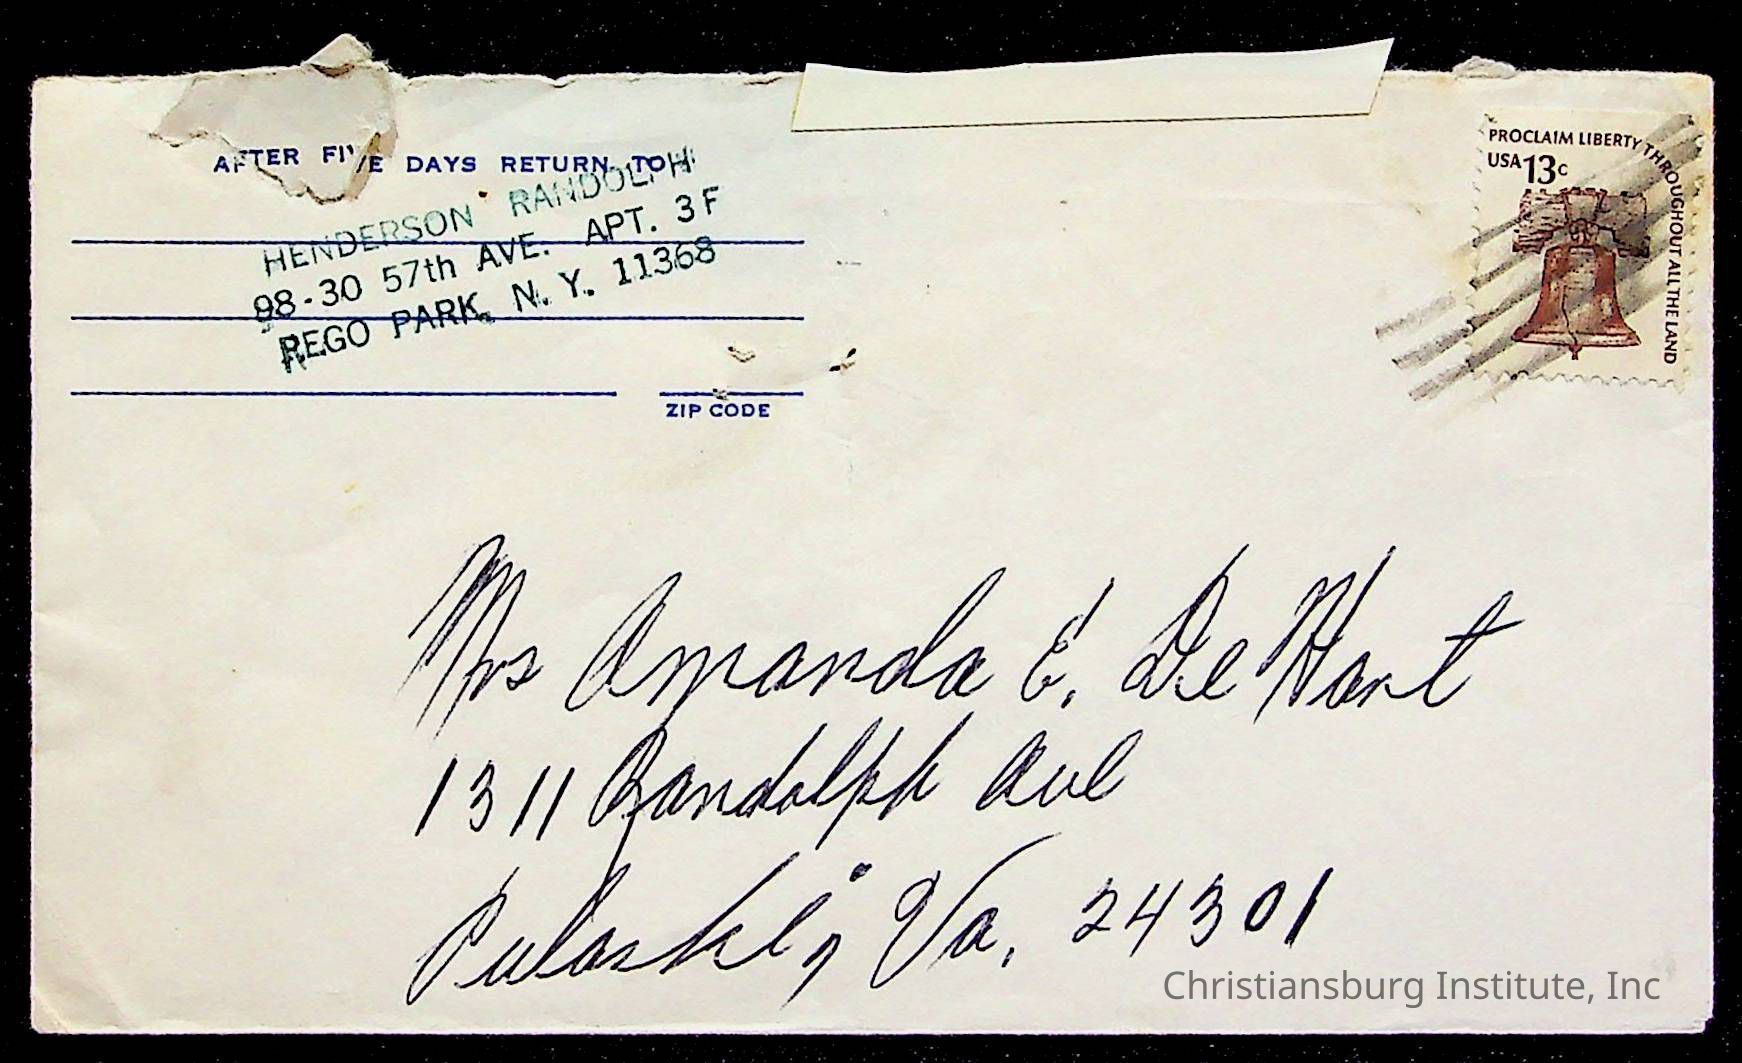 AFTER FIVE DAYS RETURN TO
HENDERSON RANDOLPH
98-30 57th AVE. APT. 3F
REGO PARK, N.Y. 11368
ZIP CODE
PROCLAIM LIBERTY THROUGHOUT ALL THE LAND
USA 13c
Mrs Amanda E. De Hart
1311 Randolph Ave
Pulaski, Va. 24301
Christiansburg Institute, Inc